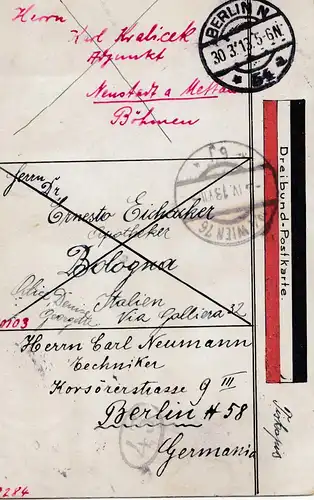 Herrn
Karl Kralicek
Adjunkt
Neustadt a Mettau
Böhmen
BERLIN N
30 3.13 5-6N.
* 54 a
Herrn
Dr
Ernesto Eichacker
Apotheker
Bologna
Italien
Via Galliera 32
WIEN 76
Dreibund-Postkarte.
0103
Herrn Carl Neumann
Techniker
Korsörerstrasse 9 III
Berlin N 58
Germania
284